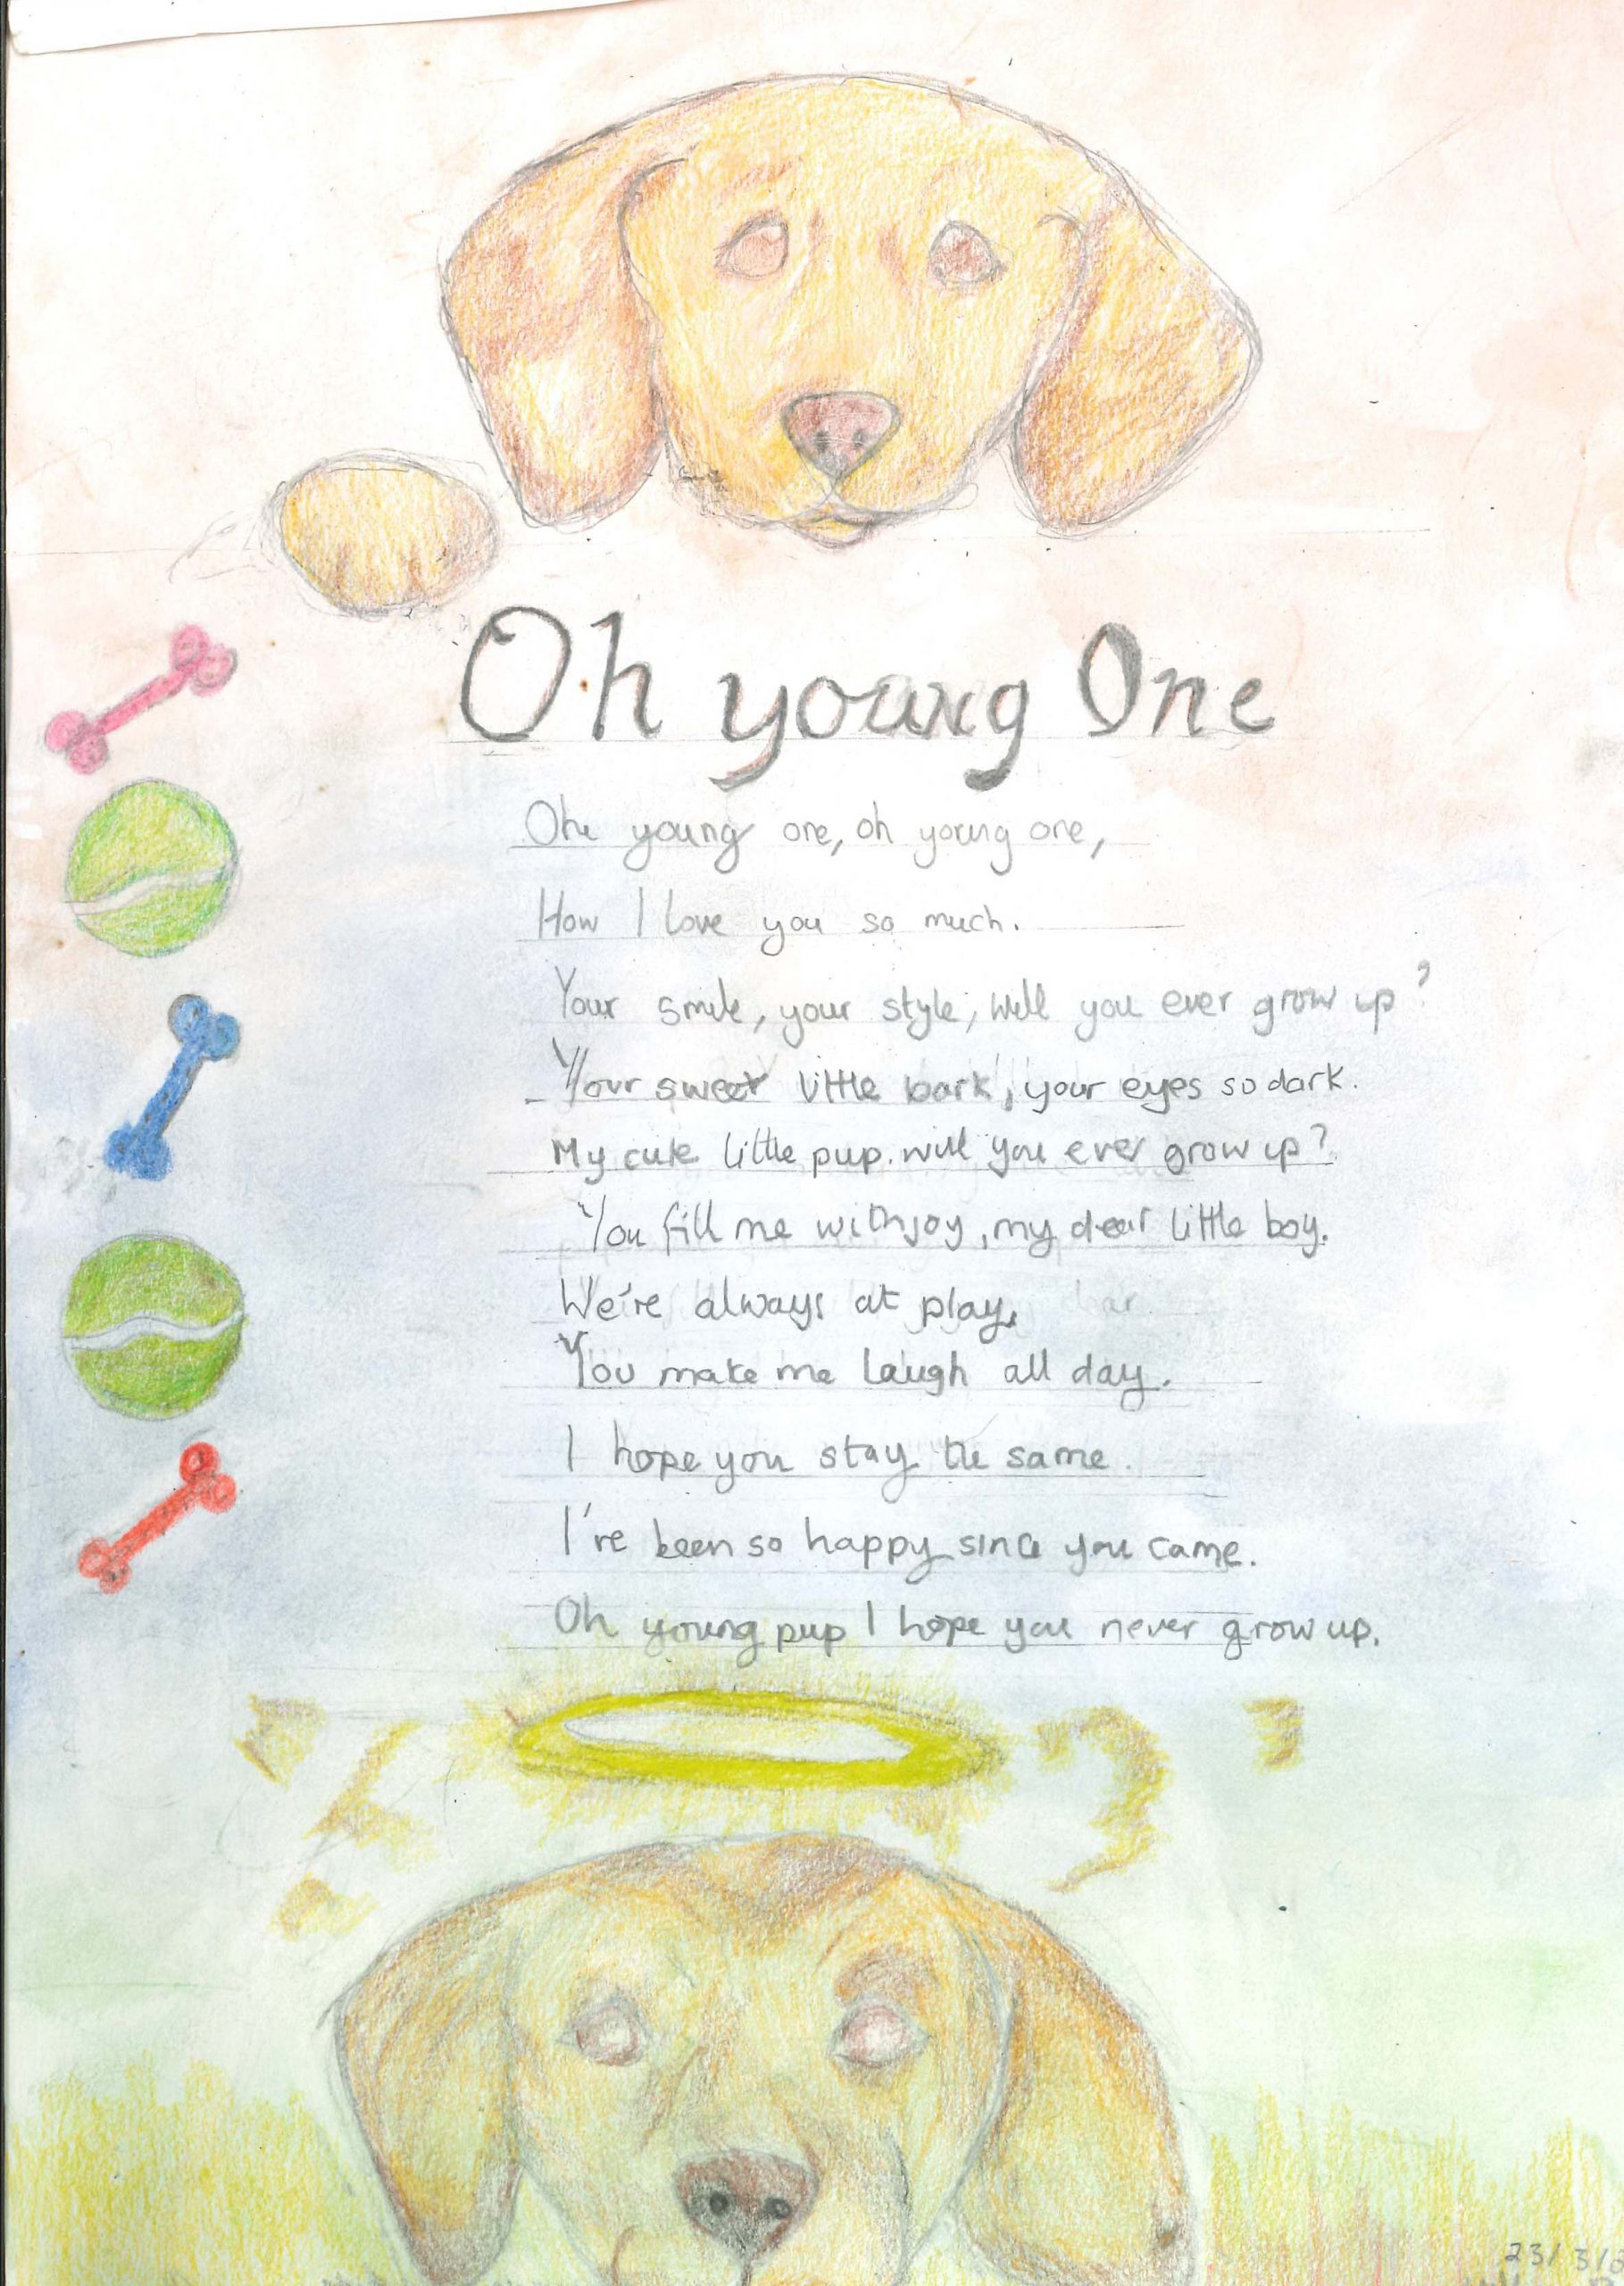 Oh young One
Oh young one, oh young one,
How I love you so much.
Your smile, your style, will you ever grow up?
Your sweet little bark, your eyes so dark.
My cute little pup. will you ever grow up?
You fill me with joy, my dear little boy.
We're always at play,
You make me laugh all day.
I hope you stay the same.
I've been so happy since you came.
Oh young pup I hope you never grow up.
23/3/